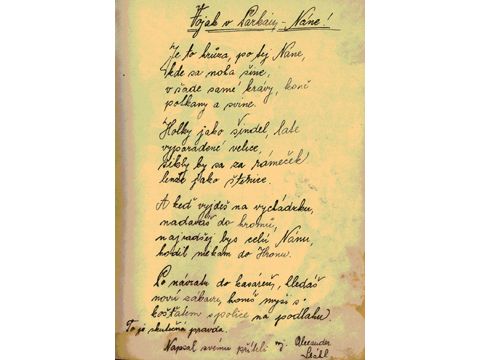 Vojak v Náne!
Je to hrůza, po tej Náne,
kde sa noha šine,
všade samé krávy, koně
potkany a svine.
Holky jako šindel, laté
vyparáděné velice,
šikly by sa za rámeček
lenže jako štetnice.
A keď vyjdeš na vychádzku,
nadávaš do hromů,
najradšej bys celú Nánu,
hodil niekam do Hronu.
Po návratu do kasáreň, hledáš
novú zábavu, honíš myši s
košťatem spolice na podlahu.
To je skutečná pravda.
Napsal svému příteli mj. Alexander